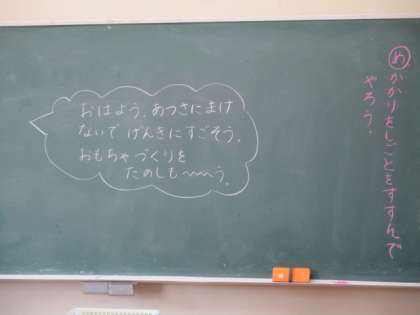 め かかりをしごとをすすんで
やろう。
おはよう。あつさにまけ
ないで げんきにすごそう。
おもちゃづくりを
たのしも〜〜う。